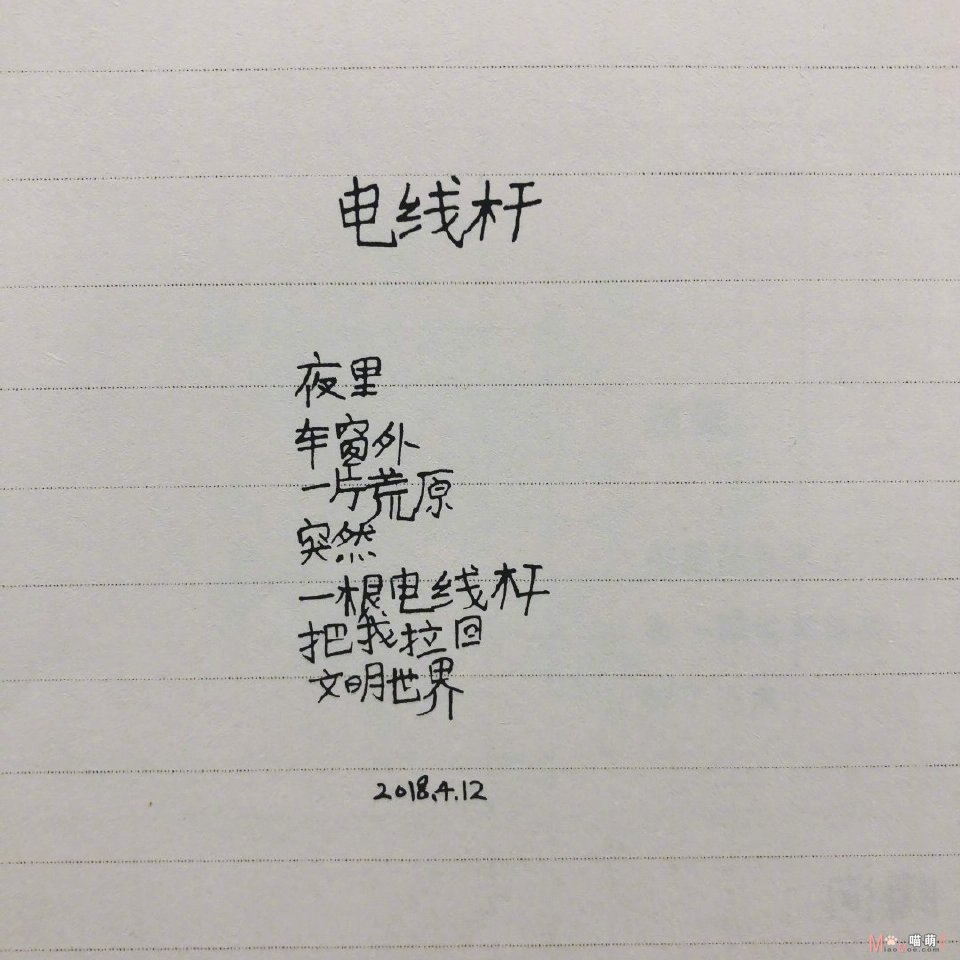 电线杆
夜里
车窗外
一片荒原
突然
一根电线杆
把我拉回
文明世界
2018.4.12
喵萌